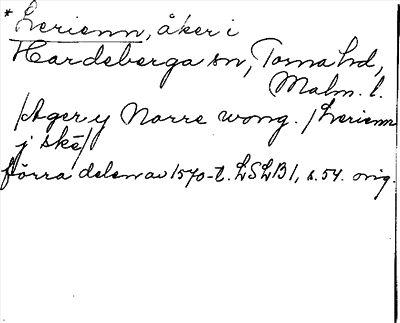 * Lerienn, åker i
Hardeberga sn, Torna hd,
Malm. l.
/Ager y Norre wong. / Lerienn
j skē/
förra delen av 1570-t. LSLB 1, s. 54. orig.